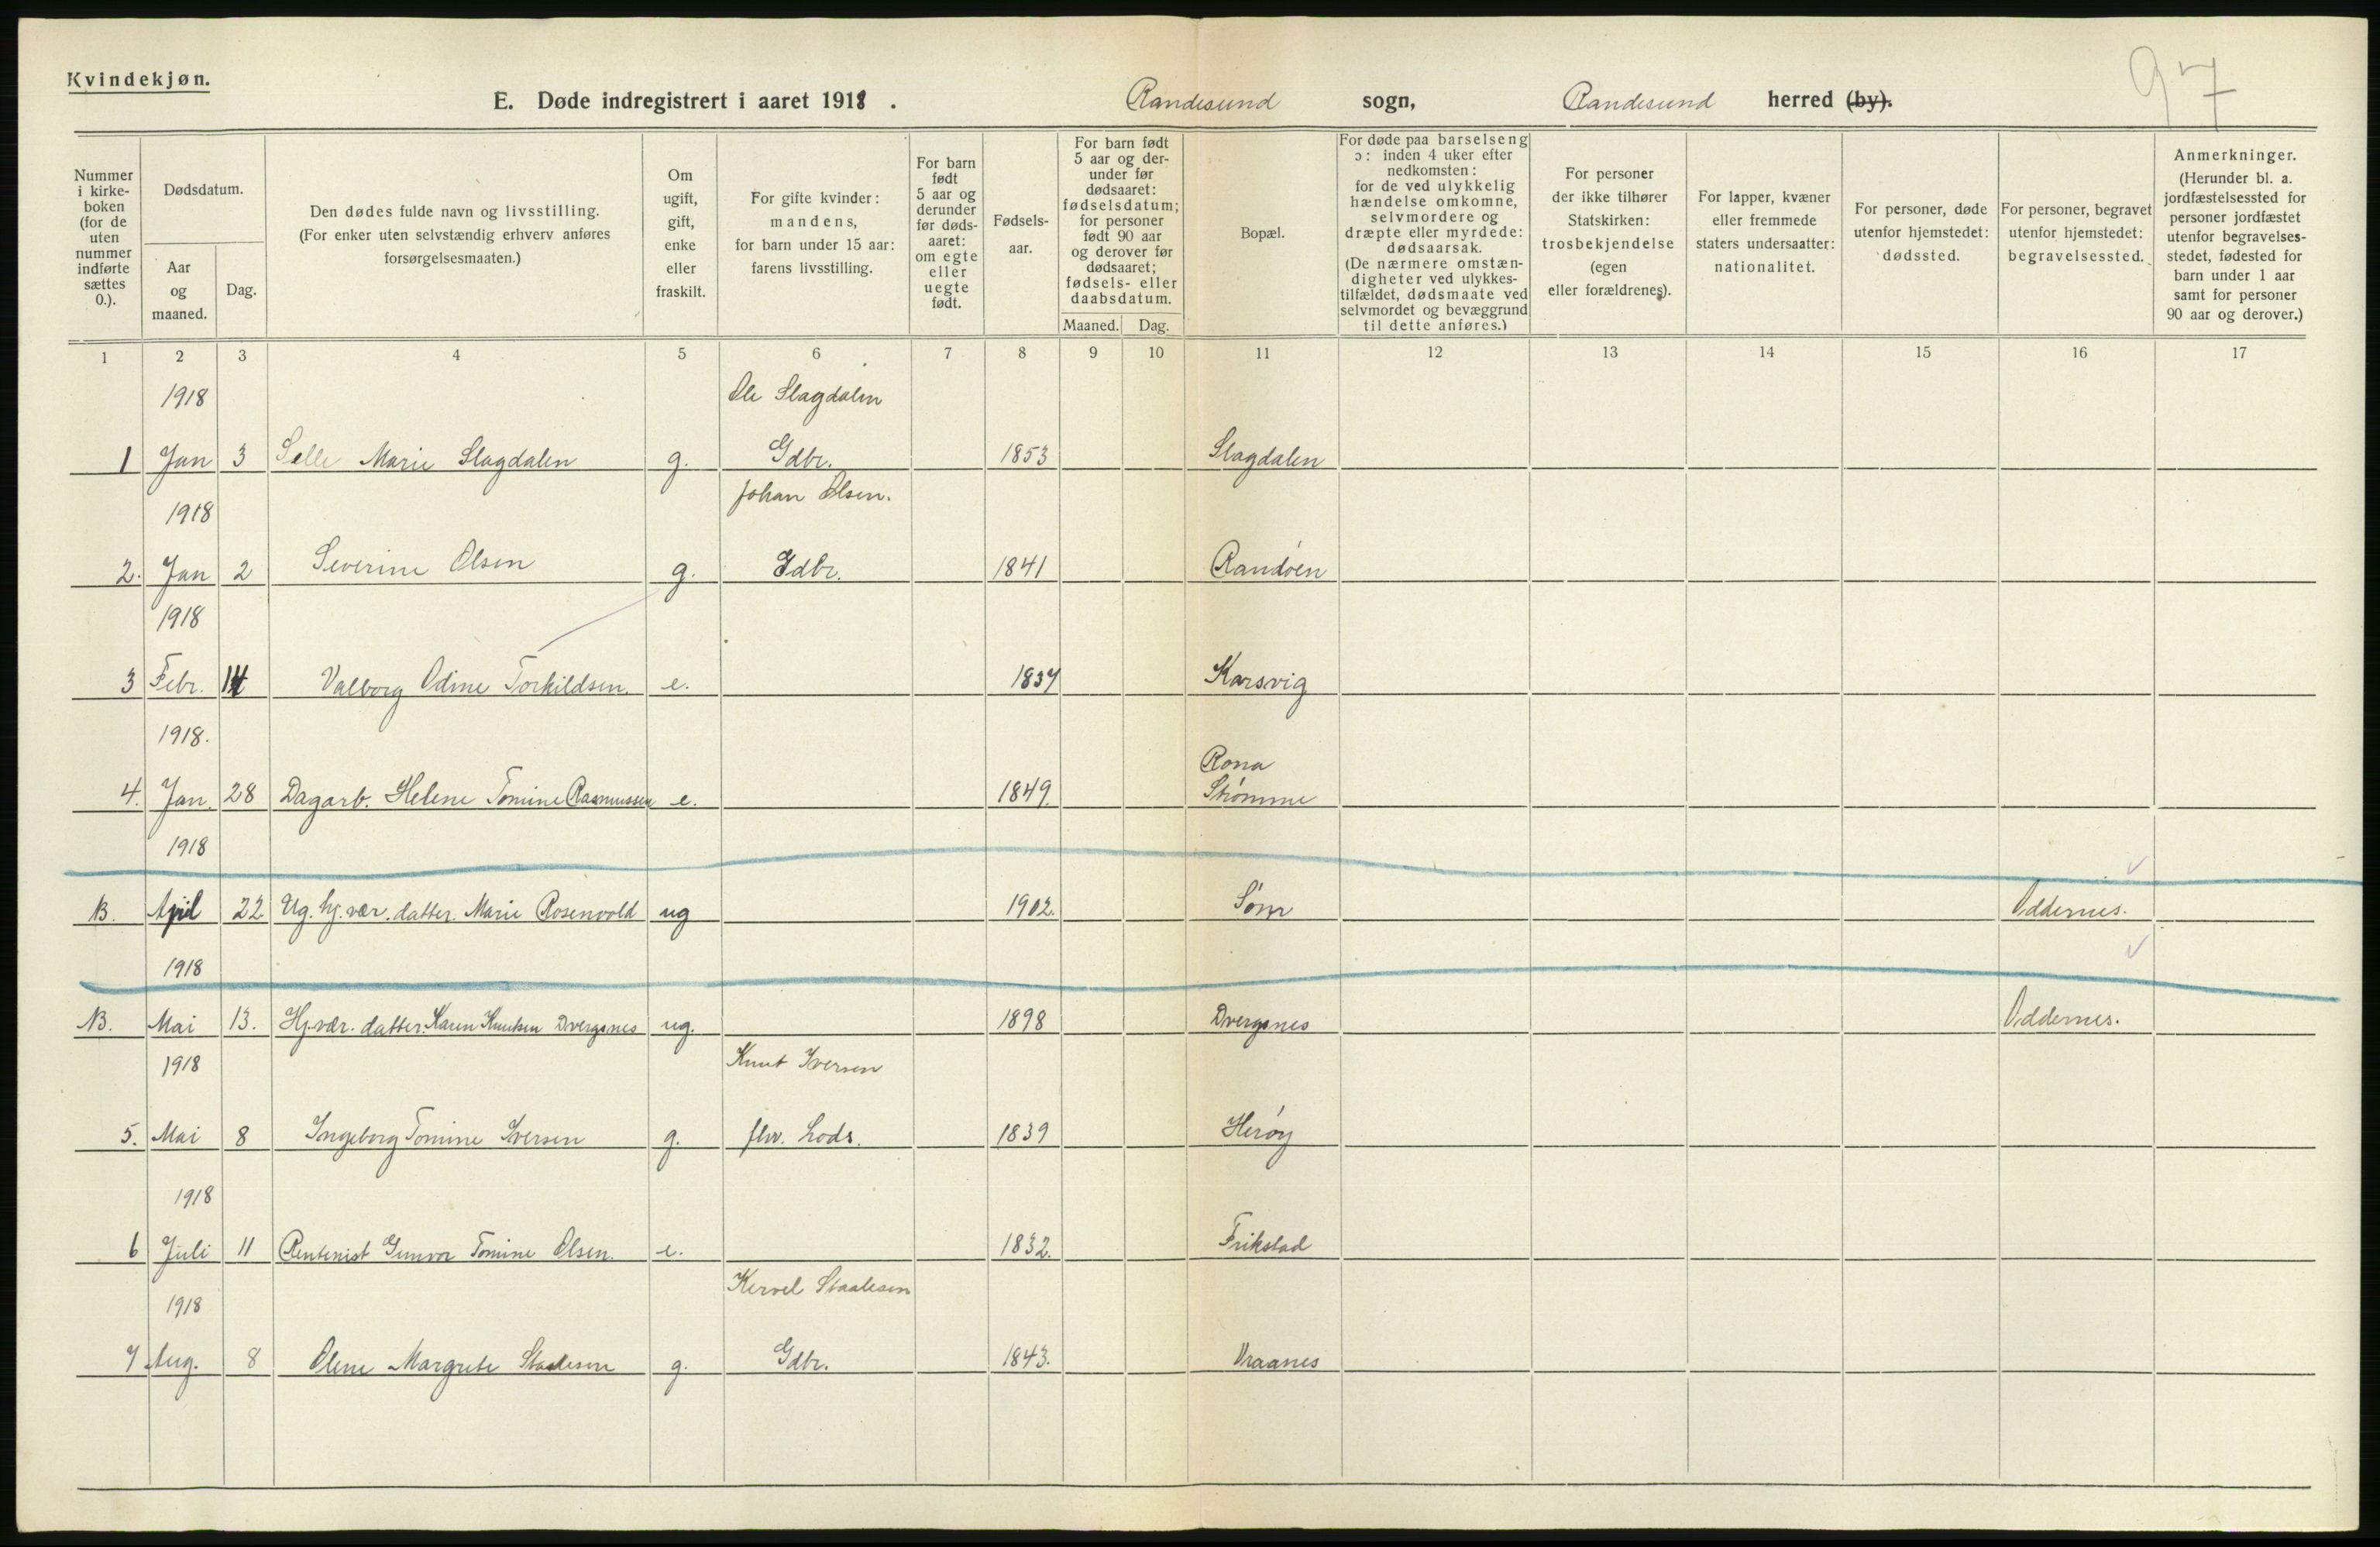 Kvindekjøn.
E. Døde indregistrert i aaret 1918 . Randesund sogn, Randesund herred (by).
97
Nummer i kirke-boken (for de uten nummer indførte sættes 0.).
Dødsdatum.
Aar og maaned.
Dag.
Den dødes fulde navn og livsstilling.
(For enker uten selvstændig erhverv anføres
forsørgelsesmaaten.)
Om ugift, gift, enke eller fraskilt.
For gifte kvinder: mandens, for barn under 15 aar: farens livsstilling.
For barn født 5 aar og derunder før døds-aaret: om egte eller uegte født.
Fødsels-aar.
For barn født 5 aar og der-under før dødsaaret: fødselsdatum; for personer født 90 aar og derover før dødsaaret; fødsels- eller daabsdatum.
Maaned. Dag.
Bopæl.
For døde paa barselseng ɔ: inden 4 uker efter nedkomsten: for de ved ulykkelig hændelse omkomne, selvmordere og dræpte eller myrdede: dødsaarsak. (De nærmere omstæn-digheter ved ulykkes-tilfældet, dødsmaate ved selvmordet og bevæggrund til dette anføres.)
For personer der ikke tilhører Statskirken: trosbekjendelse (egen eller forældrenes).
For lapper, kvæner eller fremmede staters undersaatter: nationalitet.
For personer, døde utenfor hjemstedet: dødssted.
For personer, begravet utenfor hjemstedet: begravelsessted.
Anmerkninger. (Herunder bl. a. jordfæstelsessted for personer jordfæstet utenfor begravelses-stedet, fødested for barn under 1 aar samt for personer 90 aar og derover.)
1 2 3 4 5 6 7 8 9 10 11 12 13 14 15 16 17
1918 Ole Slagdalen
1 Jan 3 Selle Marie Slagdalen g. Gdbr. 1853 Slagdalen
1918 Johan Olsen.
2. Jan 2 Severine Olsen g. Gdbr. 1841 Randöen
1918
3 Febr. 14 Valborg Odine Torkildsen. e. 1837 Korsvig
1918. Rona
4. Jan. 28 Dagarb. Helene Tomine Rasmussen e. 1849. Strömme
1918
B. April 22 Ug. hj. vær. datter. Marie Rosenvold ug 1902. Söm Oddernes.
1918
B. Mai 13. Hj. vær. datter. Karen Knutsen Dvergsnes ug. 1898 Dvergsnes Oddernes.
1918 Knut Iversen
5. Mai 8 Ingeborg Tomine Iversen g. fhv. Lods. 1839 Heröy
1918
6 Juli 11 Rentenist Gunvor Tomine Olsen. e. 1832. Frikstad
1918 Kervel Staalesen
7 Aug. 8 Olene Margrete Staalesen g. Gdbr. 1843. Vraanes